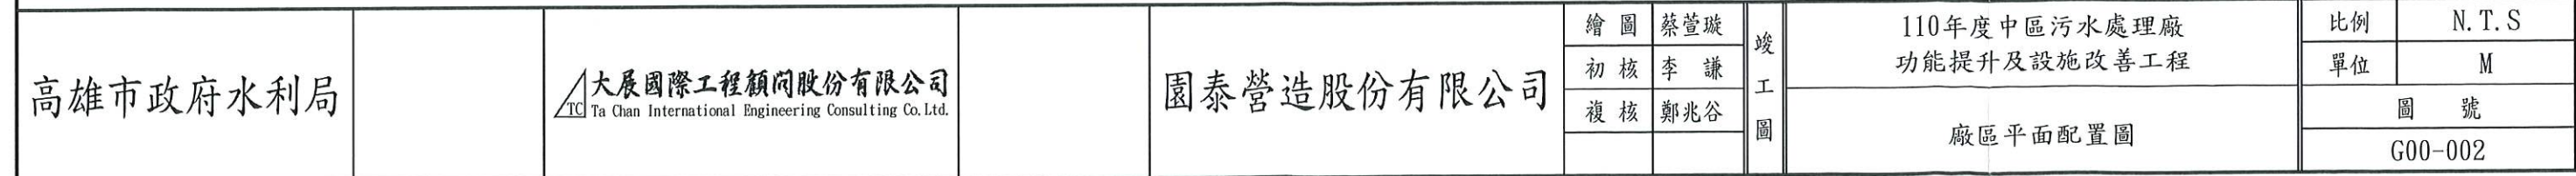 高雄市政府水利局
TC
大展國際工程顧問股份有限公司
Ta Chan International Engineering Consulting Co.Ltd.
園泰營造股份有限公司
繪圖 蔡萱璇
初核 李謙
複核 鄭兆谷
竣工圖
110年度中區污水處理廠
功能提升及設施改善工程
廠區平面配置圖
比例 N.T.S
單位 M
圖號
G00-002